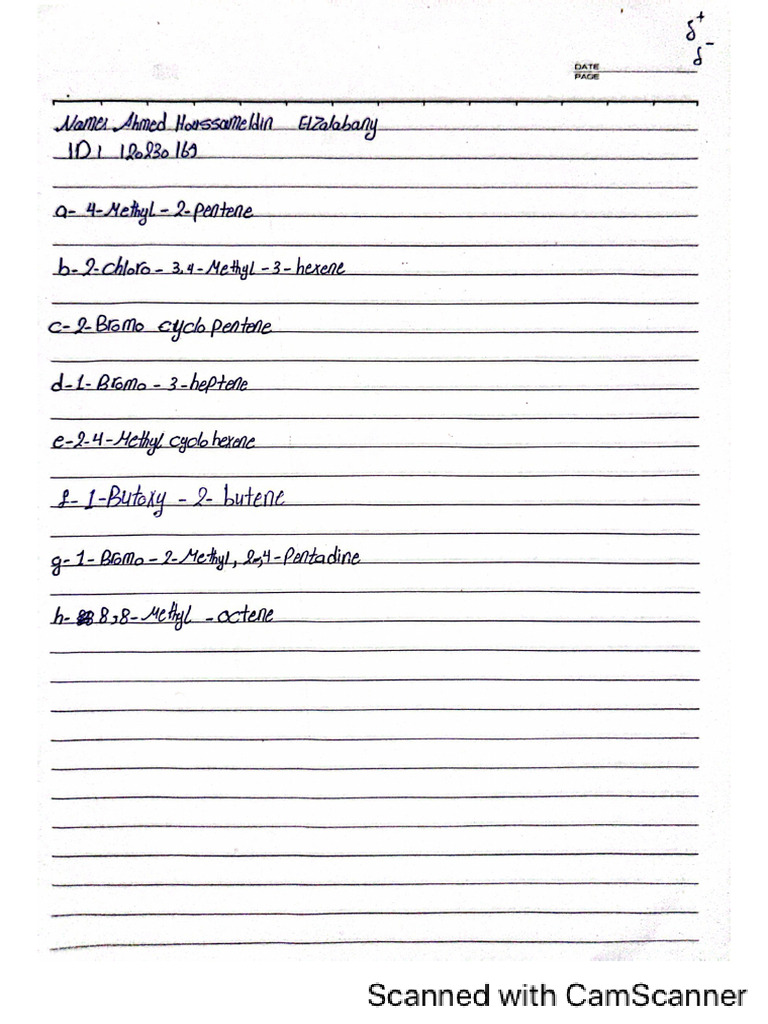 δ+
δ-
DATE
PAGE
Name: Ahmed Houssameldin Elzalabany
ID: 120230169
a- 4-Methyl - 2-pentene
b-2-chloro - 3,4-Methyl -3- hexene
c-2-Bromo cyclo pentene
d-1- Bromo - 3-heptene
e-2-4-Methyl cyclo hexene
f- 1-Butoxy - 2- butene
g-1- Bromo -2-Methyl, 2,4-Pentadine
h- 8,8-Methyl -octene
Scanned with CamScanner